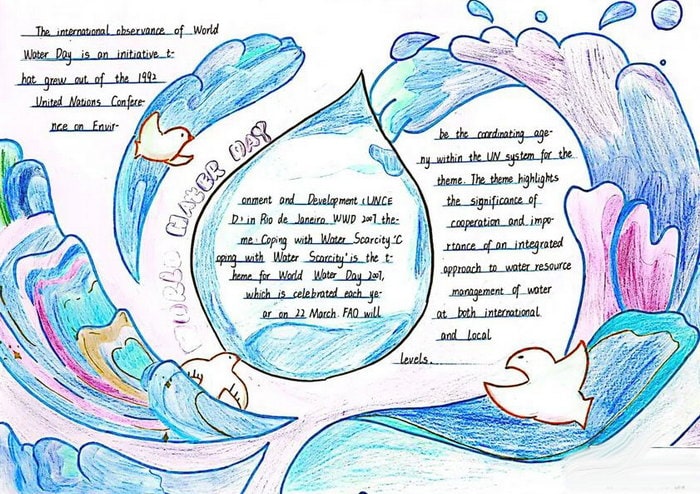 The international observance of World
Water Day is an initiative t-
hat grew out of the 1992
United Nations Confere-
nce on Envir-
WORLD WATER DAY
onment and Development (UNCE
D) in Rio de Janeiro. WWD 2007 the-
me: Coping with Water Scarcity.'C
oping with Water Scarcity' is the t-
heme for World Water Day 2007,
which is celebrated each ye-
ar on 22 March. FAO will
be the coordinating age-
ny within the UN system for the
theme. The theme highlights
the significance of
cooperation and impo-
rtance of an integrated
approach to water resource
management of water
at both international
and local
levels.